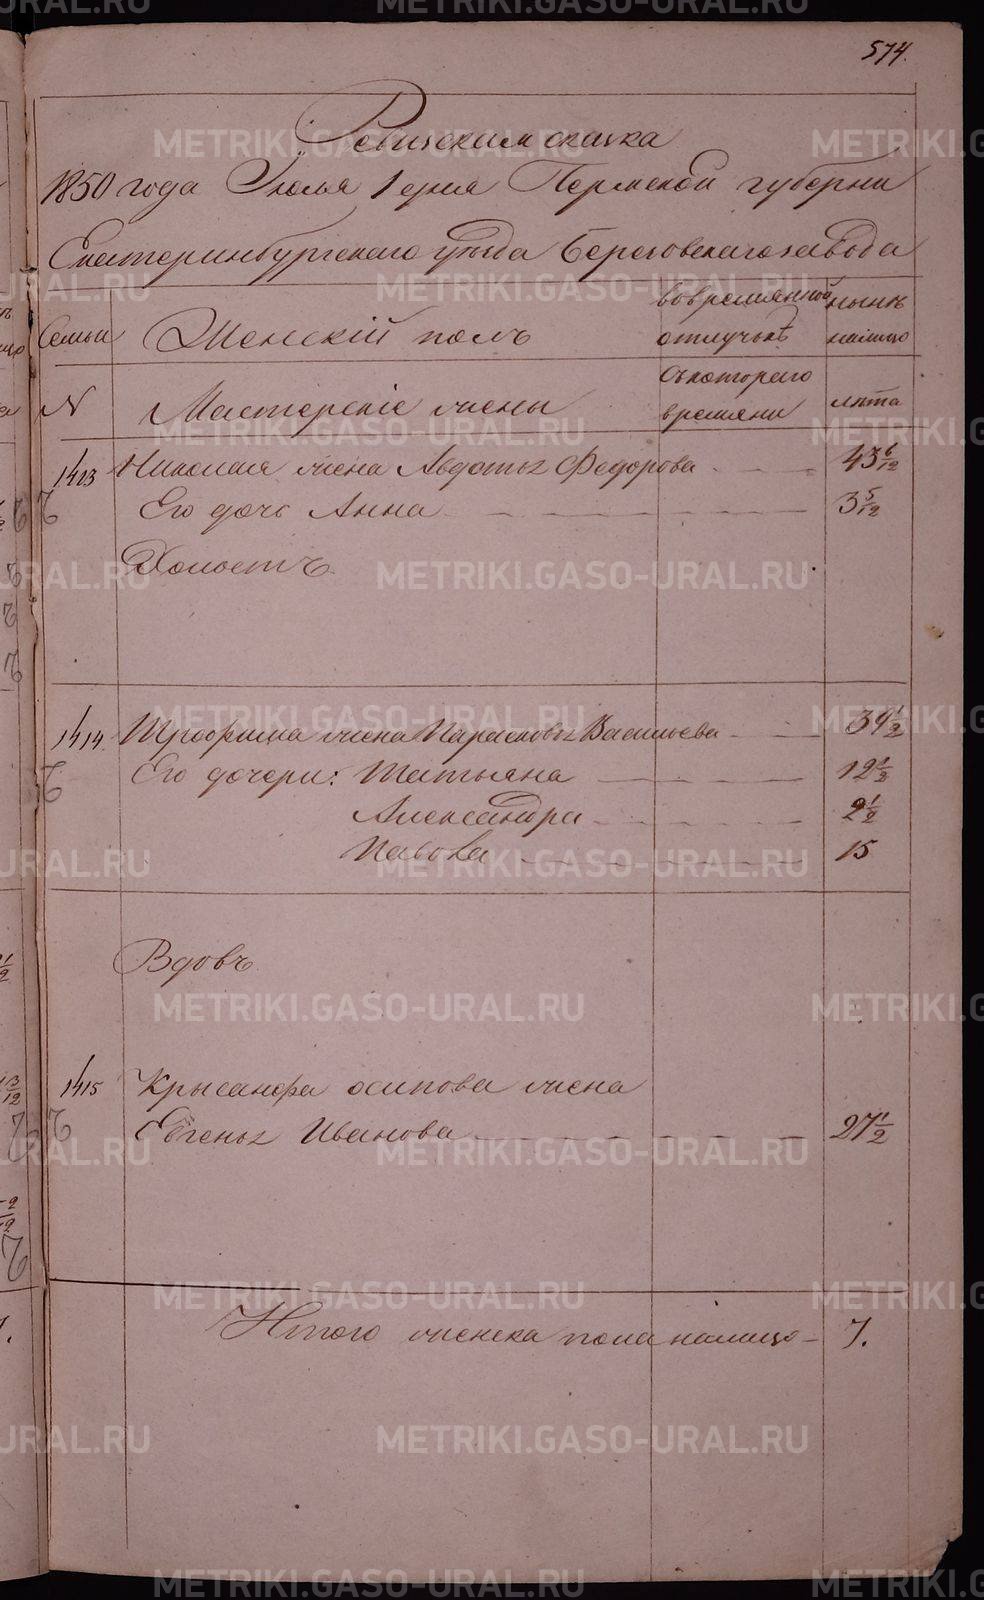 574.
Ревизская сказка
1850 года Июля 1 дня Пермской губернии
Екатеринбургскаго уезда Березовскаго завода
Семьи
Женскій полъ
во временной отлучкѣ
нынѣ налицо
N
Мастерскіе жены
съ котораго времяни
лѣта
1413 Николая жена Авдотья Федорова 43 6/12
Его дочь Анна 3 5/12
Холостъ
1414. Трофима жена Парасковья Васильева 39 1/2
Его дочери: Татьяна 12 1/2
Александра 2 1/2
15
Вдовъ
1415 Крысанфа осипова жена
Евгенья Иванова 27 1/2
Итого женска пола налицо 7.
METRIKI.GASO-URAL.RU